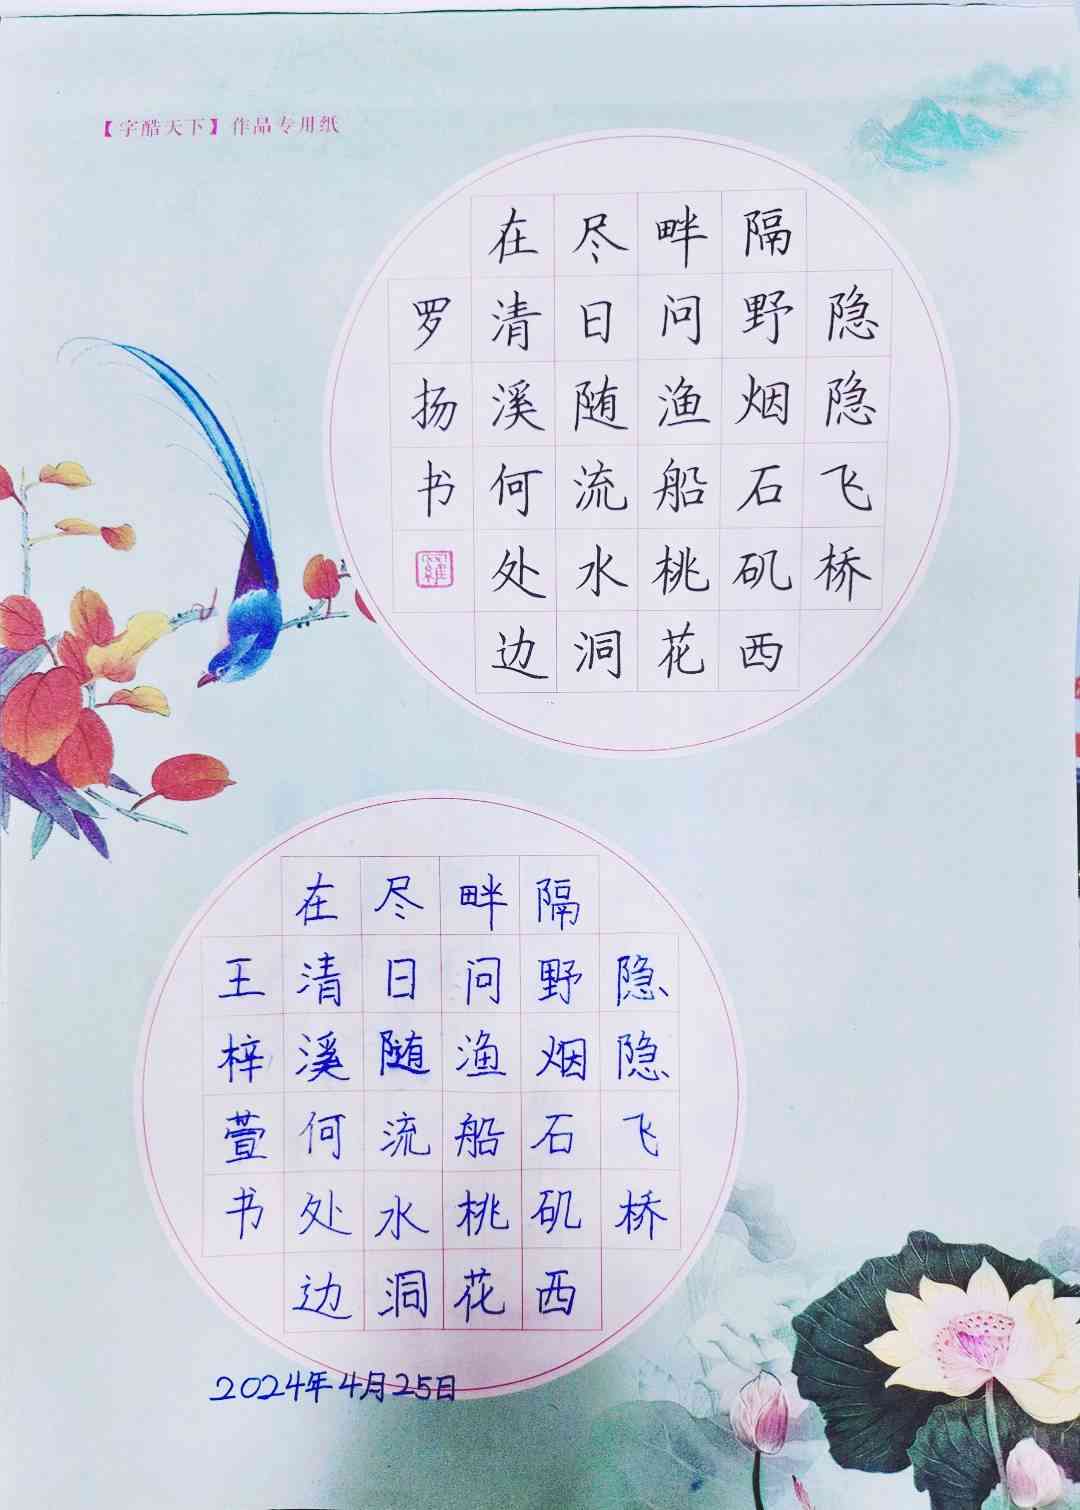 【字酷天下】作品专用纸
隐隐飞桥
隔野烟石矶西
畔问渔船桃花
尽日随流水洞
在清溪何处边
罗扬书
羅
隐隐飞桥
隔野烟石矶西
畔问渔船桃花
尽日随流水洞
在清溪何处边
王梓萱书
2024年4月25日